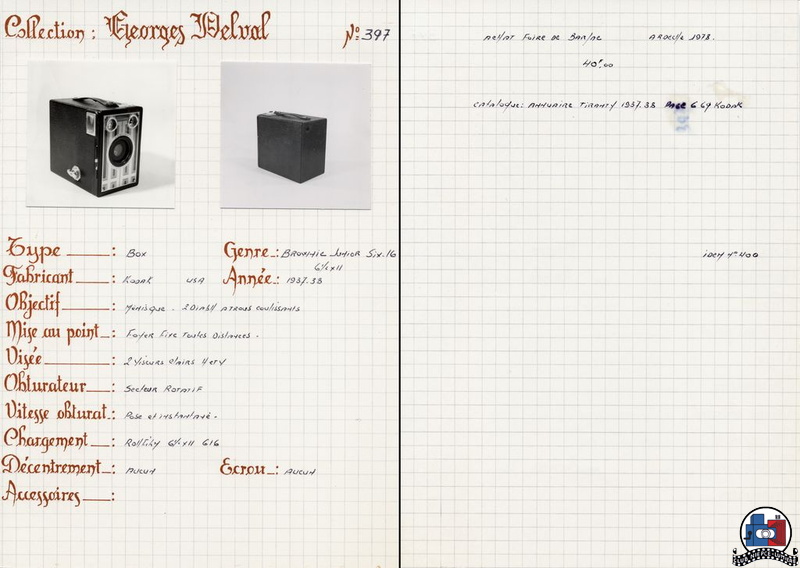 Collection : Georges Delval Nº 397
Type : Box
Genre : Brownie Junior Six.16
6½x11
Fabricant : Kodak USA
Année : 1937.38
Objectif : Ménisque . 2 Diaph à trous coulissants
Mise au point : Foyer Fixe Toutes Distances .
Visée : 2 Viseurs clairs H et V
Obturateur : Secteur Rotatif
Vitesse obturat. : Pose et instantané .
Chargement : Rollfilm 6½x11 616
Décentrement : Aucun
Ecrou : Aucun
Accessoires :
Achat Foire de Ardèche 1978.
40F.00
Catalogue: Annuaire Tiranty 1937.38 Page G 69 Kodak
idem Nº 400